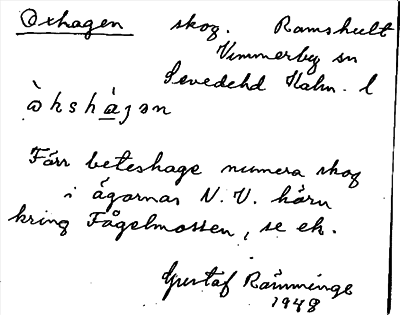 Oxhagen skog. Ramshult
Vimmerby sn
Sevedehd Kalm. l
ò̀kshàgən
Förr beteshage numera skog
i ägornas N.V. hörn
kring Fågelmossen, se ek.
Gustaf Rämminge
1948